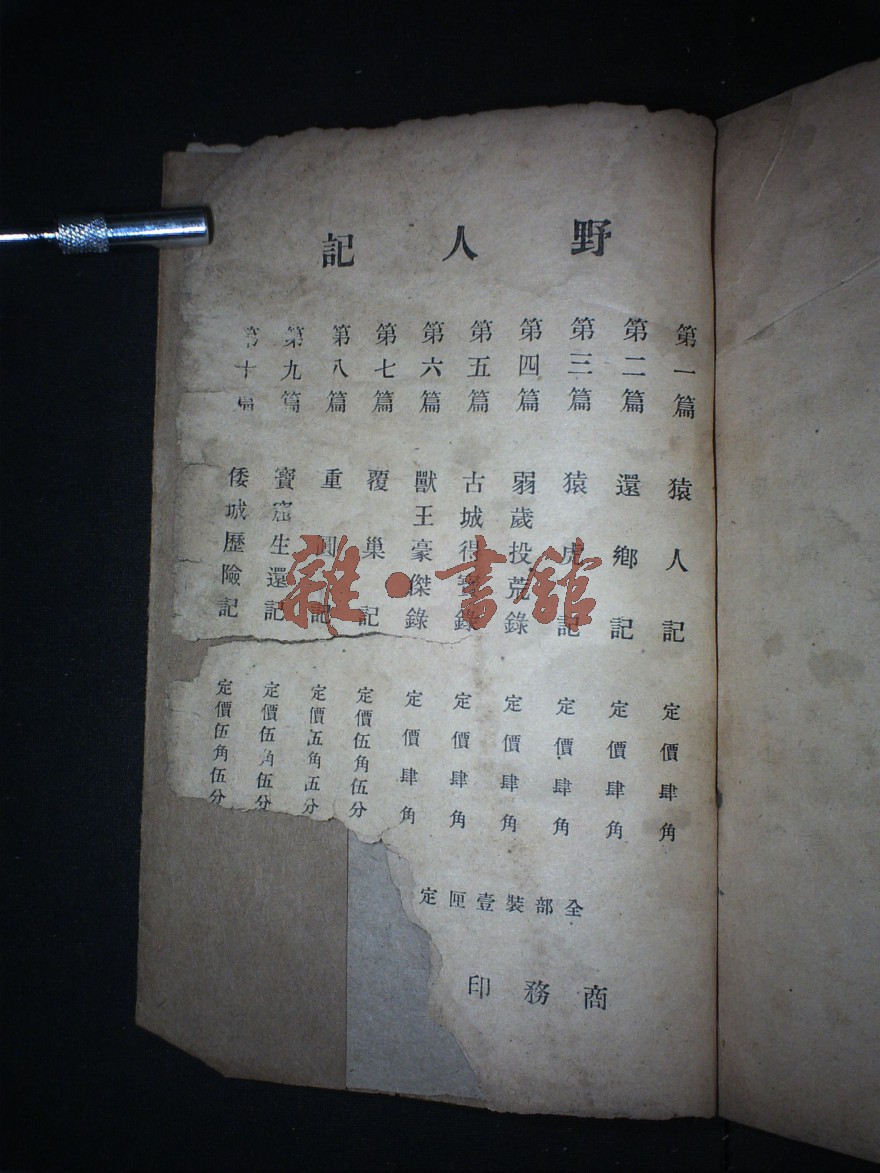 野人記
第一篇 猿人記 定價肆角
第二篇 還鄉記 定價肆角
第三篇 猿虎記 定價肆角
第四篇 弱歲投荒錄 定價肆角
第五篇 古城得寶錄 定價肆角
第六篇 獸王豪傑錄 定價肆角
第七篇 覆巢記 定價伍角伍分
第八篇 重圓記 定價五角五分
第九篇 寶窟生還記 定價伍角伍分
第十篇 倭城歷險記 定價伍角伍分
全部裝壹匣定
商務印
雜·書館